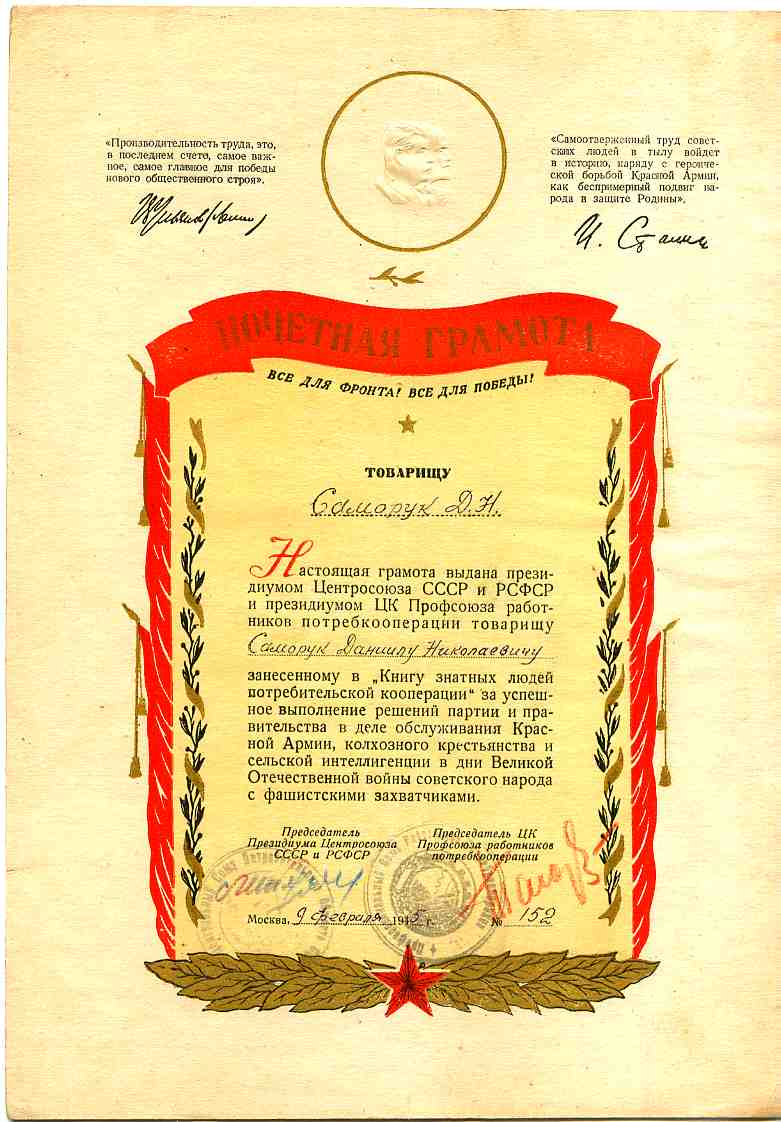 «Производительность труда, это,
в последнем счете, самое важ-
ное, самое главное для победы
нового общественного строя».
«Самоотверженный труд совет-
ских людей в тылу войдет
в историю, наряду с героиче-
ской борьбой Красной Армии,
как беспримерный подвиг на-
рода в защите Родины».
И. Сталин
ПОЧЕТНАЯ ГРАМОТА
ВСЕ ДЛЯ ФРОНТА! ВСЕ ДЛЯ ПОБЕДЫ!
ТОВАРИЩУ
Саморук Д.Н.
Настоящая грамота выдана прези-
диумом Центросоюза СССР и РСФСР
и президиумом ЦК Профсоюза работ-
ников потребкооперации товарищу
Саморук Даниилу Николаевичу
занесенному в „Книгу знатных людей
потребительской кооперации“ за успеш-
ное выполнение решений партии и пра-
вительства в деле обслуживания Крас-
ной Армии, колхозного крестьянства и
сельской интеллигенции в дни Великой
Отечественной войны советского народа
с фашистскими захватчиками.
Председатель
Президиума Центросоюза
СССР и РСФСР
Председатель ЦК
Профсоюза работников
потребкооперации
Москва, 9 февраля 1945 г. № 152